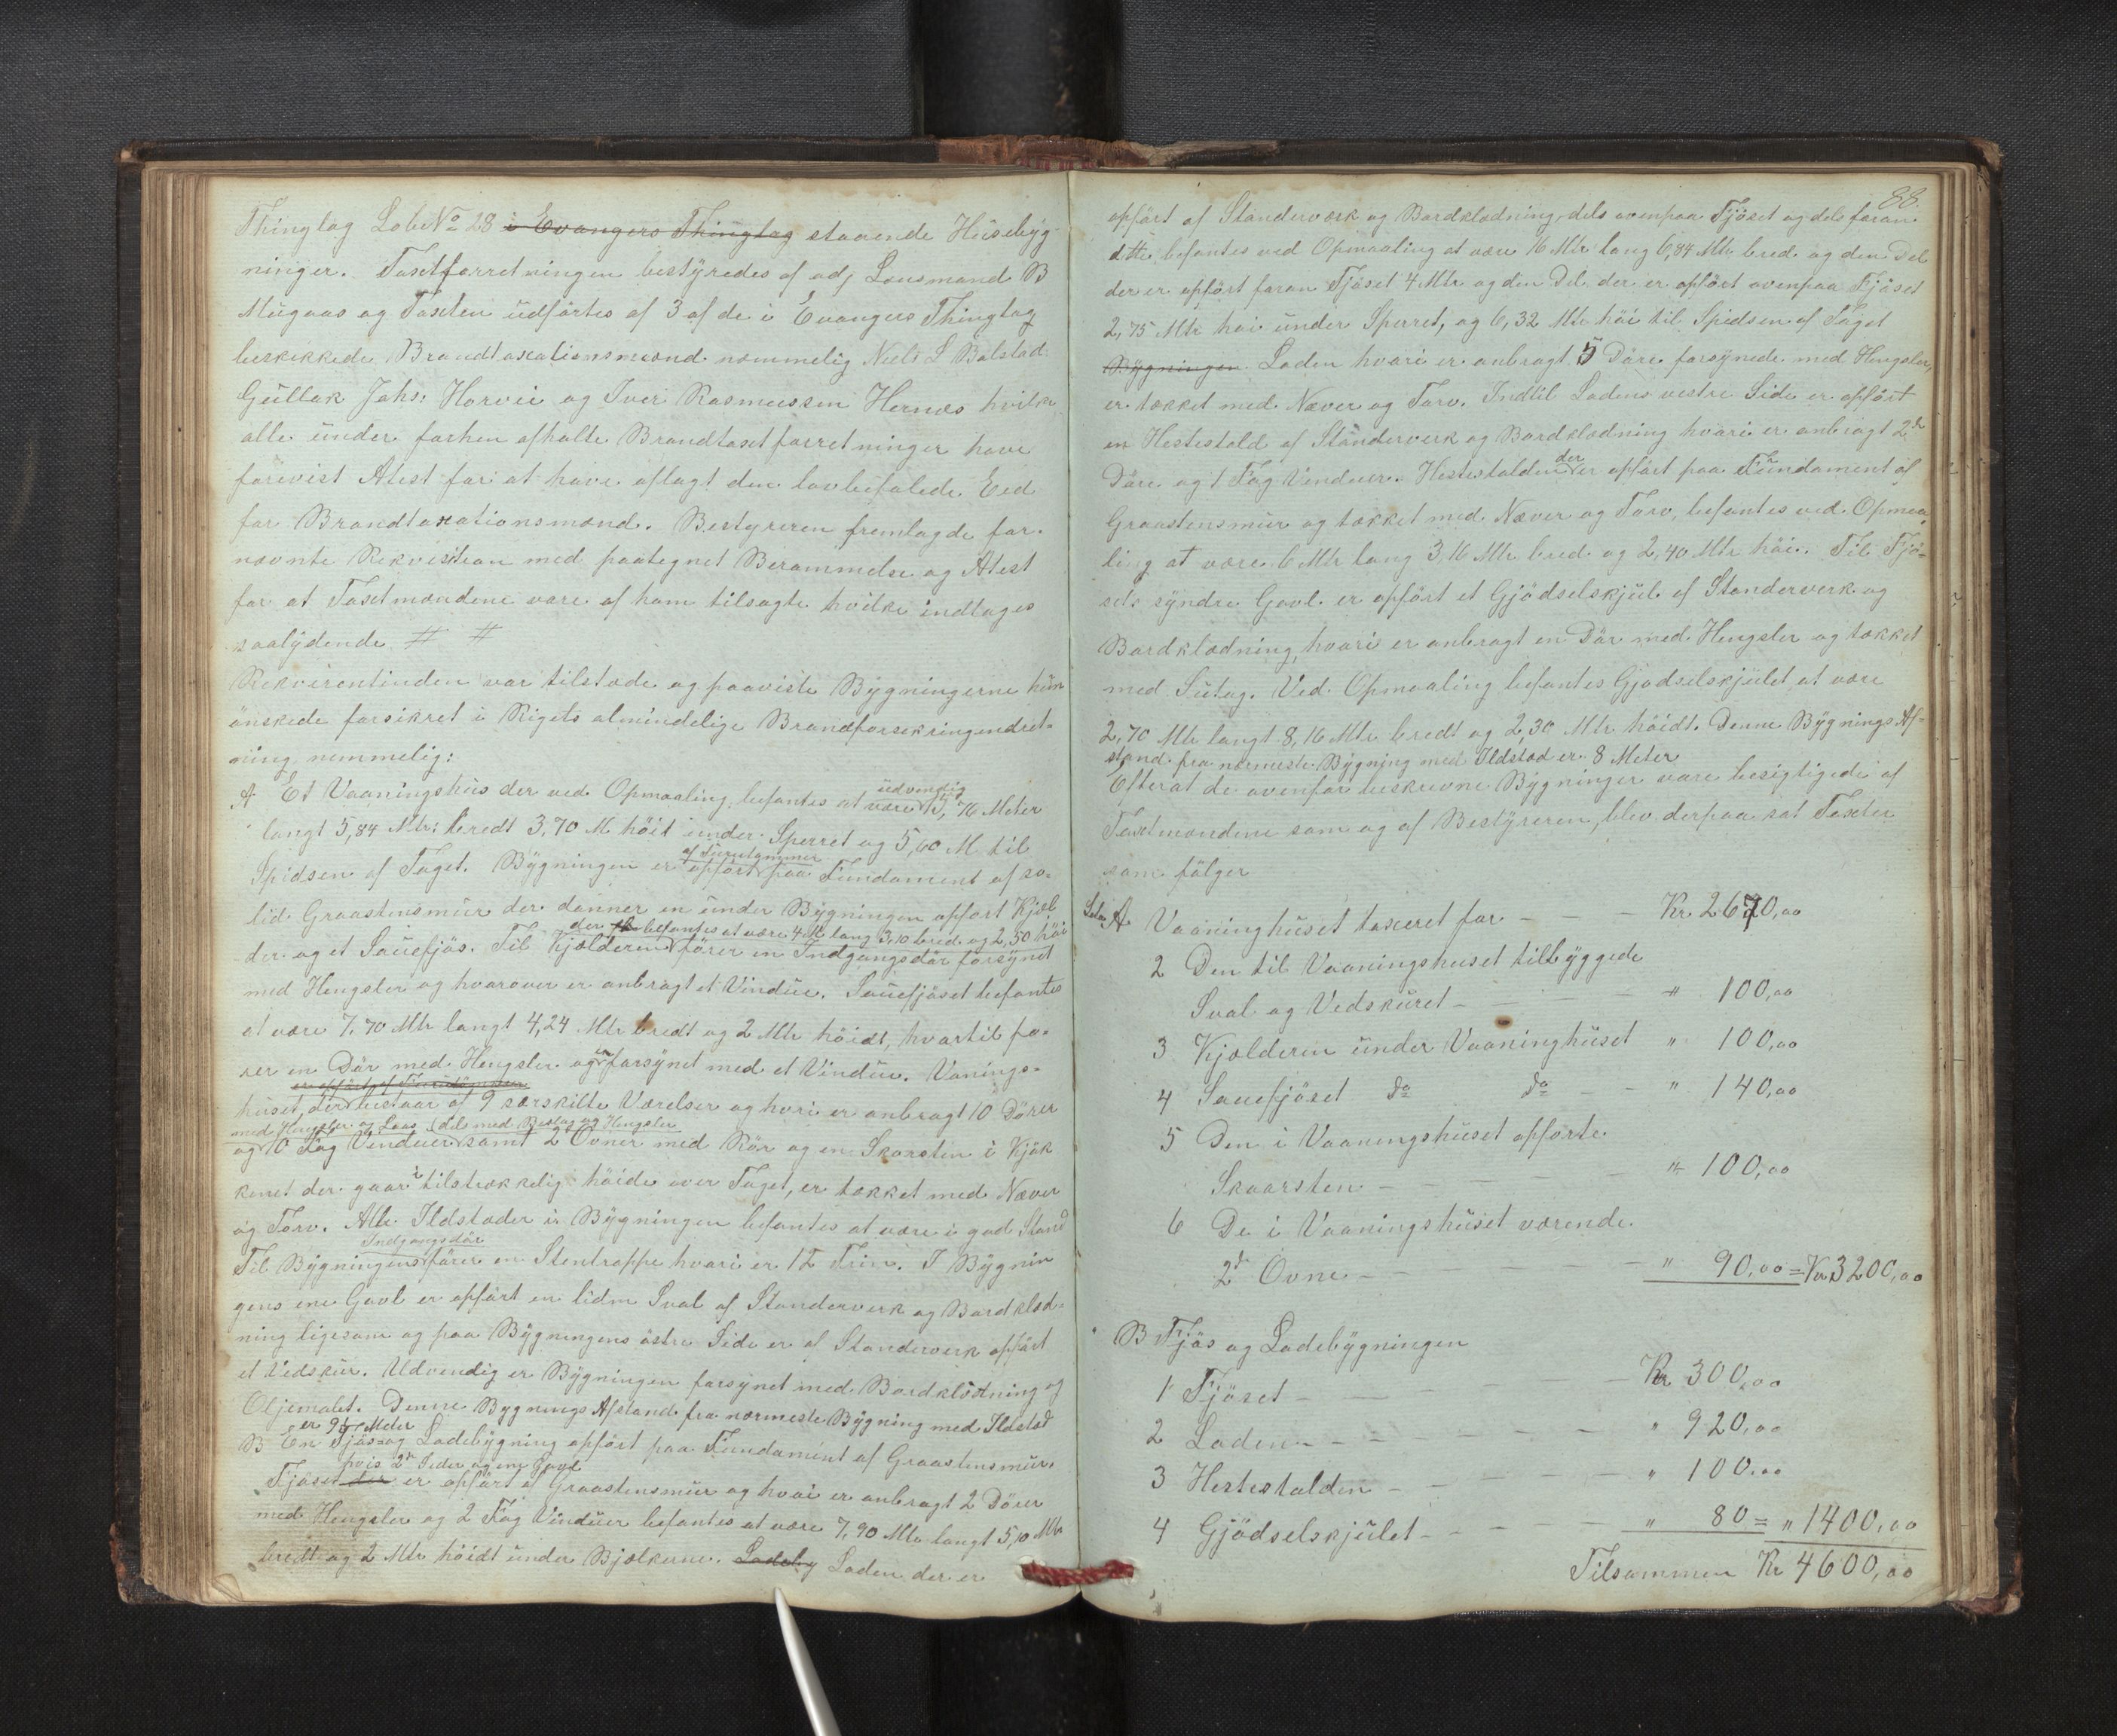 Thinglag Løbe No 28 i Evangers Thinglag staaende Huusebyg-
ninger. Taxtforretningen bestyredes af adj Lensmand B
Mugaas og Taxten udførtes af 3 af de i Evangers Thinglag
beskikkede Brandtaxationsmænd nemmelig Niels L Bolstad
Gullak Johs: Horvei og Iver Rasmussen Hernæs hvilke
alle under forhen afholte Brandtaxtforretninger have
forevist Atest for at have aflagt den lovbefalede Eed
for Brandtaxationsmænd. Bestyreren fremlagde for-
nevnte Rekvisition med paategnet Berammelse og Atest
for at Taxtmændene vare af ham tilsagte hvilke indtages
saalydende # #
Rekvirentinden var tilstæde og paaviste Bygningerne hun
ønskede forsikret i Rigets almindelige Brandforsekringsindret-
ning nemmelig:
A Et Vaaningshus der ved Opmaaling befantes at være udvendig 15,76 Meter
langt 5,84 Mtr: bredt 3,70 M høit under Sperret og 5,60 M til
Spidsen af Taget. Bygningen er opført af Furutømmer paa Fundament af so-
lid Graastensmur der danner en under Bygningen opført Kjæl-
der og et Sauefjøs. Til Kjælderen der befantes at være 4 M lang 3,10 bred og 2,50 høi fører en Indgangsdør forsynet
med Hengsler og hvorover er anbragt et Vindue. Sauefjøset befantes
at være 7,70 Mtr langt 4,24 Mtr bredt og 2 Mtr høidt, hvortil fø-
rer en Dør med Hengsler og er forsynet med et Vindue. Vanings-
er opført af Furutømmer
huset, der bestaar af 9 særskilte Værelser og hvori er anbragt 10 Dører
med Hengsler og Laas dels med Beslag og Hengsler
og 10 Fag Vinduer samt 2 Ovner med Rør og en Skorsten i Kjøk-
kenet der gaar i tilstrækkelig høide over Taget, er tækket med Næver
og Torv. Alle Ildstæder i Bygningen befantes at være i god Stand
Til Bygningens Indgangsdør fører en Stentrappe hvori er 12 Trin. I Bygnin
gens ene Gavl er opført en liden Sval af Standerverk og Bordklæd-
ning ligesom og paa Bygningens østre Side er af Standerverk opført
et Vedskur. Udvendig er Bygningen forsynet med Bordklædning og
Oljemalet. Denne Bygnings Afstand fra nærmeste Bygning med Ildsted
er 9½ Meter
B En Fjøs og Ladebygning opført paa Fundament af Graastensmur.
Fjøset der hvis 2de Sider og ene Gavl er opført af Graastensmur og hvori er anbragt 2 Dører
med Hengsler og 2 Fag Vinduer befantes at være 7,90 Mtr langt 5,10 Mtr
bredt og 2 Mtr høidt under Bjelkerne. Ladeby Laden der er
88.
opført af Standerværk og Bordklædning, dels ovenpaa Fjøset og dels foran
dette befantes ved Opmaaling at være 16 Mtr lang 6,84 Mtr bred og den Del
der er opført foran Fjøset 4 Mtr og den Del der er opført ovenpaa Fjøset
2,75 Mtr høi under Sperret, og 6,32 Mtr høi til Spidsen af Taget
Bygningen Laden hvori er anbragt 5 Døre forsynede med Hengsler,
er tækket med Næver og Torv. Indtil Ladens vestre Side er opført
en Hestestald af Standerverk og Bordklædning hvori er anbragt 2de
Døre og 1 Fag Vinduer. Hestestalden der er opført paa Fundament af
Graastensmur og tækket med Næver og Torv, befantes ved Opmaa
ling at være 6 Mtr lang 3,16 Mtr bred og 2,40 Mtr høi. Til Fjø-
sets syndre Gavl er opført et Gjødselskjul af Standerverk og
Bordklædning, hvori er anbragt en Dør med Hengsler og tækket
med Sutag. Ved Opmaaling befantes Gjødselskjulet at være
2,70 Mtr langt 8,16 Mtr bredt og 2,30 Mtr høidt. Denne Bygnings Af-
stand fra nærmeste Bygning med Ildsted er 8 Meter
Efterat de ovenfor beskrevne Bygninger vare besigtigede af
Taxtmændene som og af Bestyreren, blev derpaa sat Taxter
som følger
A Vaaninghuset taxeret for — — — Kr. 2670,00
2 Den til Vaaningshuset tilbyggede
Sval og Vedskuret — — — " 100,00
3 Kjælderen under Vaaninghuset " 100,00
4 Sauefjøset do do — " 140,00
5 Den i Vaaningshuset opførte
Skaarsten — — — " 100,00
6 De i Vaaningshuset værende
2de Ovne — — — " 90,00 = Kr 3200,00
B Fjøs og Ladebygningen
1 Fjøset — — — Kr 300,00
2 Laden — — — " 920,00
3 Hestestalden — — — " 100,00
4 Gjødselskjulet — — — " 80 = " 1400,00
Tilsammen Kr 4600,00